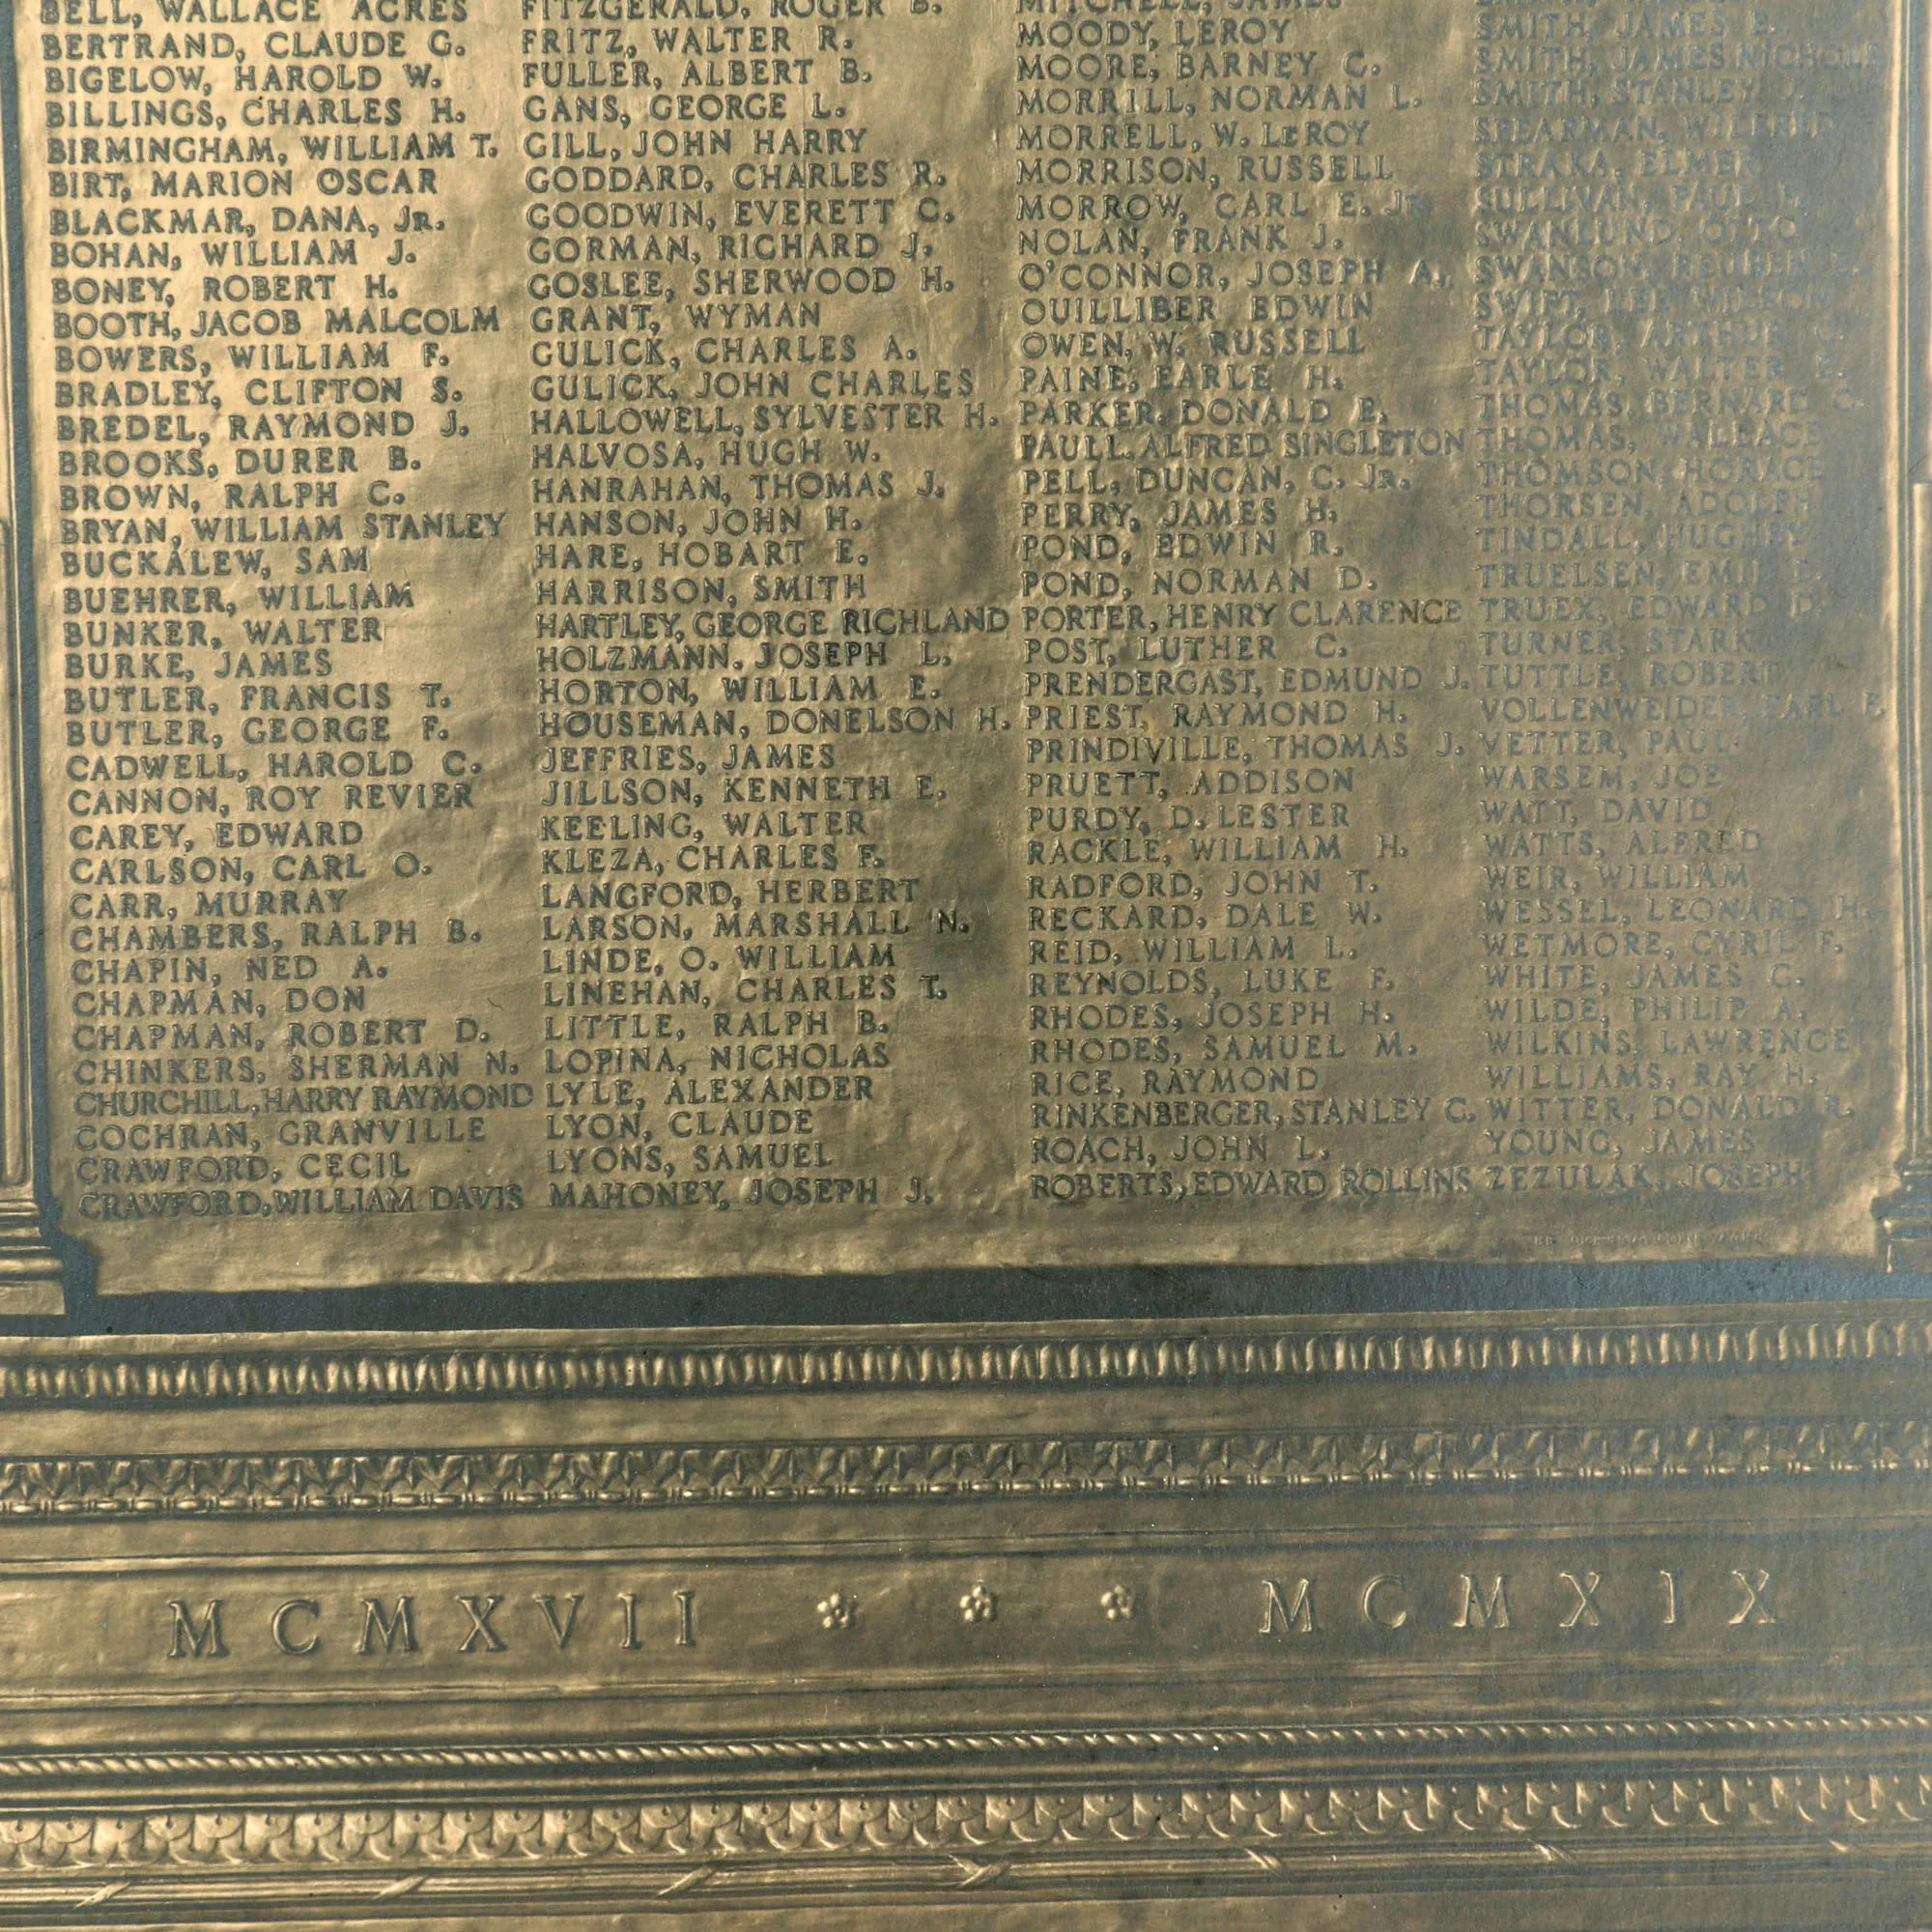 BELL, WALLACE ACRES
BERTRAND, CLAUDE G.
BIGELOW, HAROLD W.
BILLINGS, CHARLES H.
BIRMINGHAM, WILLIAM T.
BIRT, MARION OSCAR
BLACKMAR, DANA, JR.
BOHAN, WILLIAM J.
BONEY, ROBERT H.
BOOTH, JACOB MALCOLM
BOWERS, WILLIAM F.
BRADLEY, CLIFTON S.
BREDEL, RAYMOND J.
BROOKS, DURER B.
BROWN, RALPH C.
BRYAN, WILLIAM STANLEY
BUCKALEW, SAM
BUEHRER, WILLIAM
BUNKER, WALTER
BURKE, JAMES
BUTLER, FRANCIS T.
BUTLER, GEORGE F.
CADWELL, HAROLD C.
CANNON, ROY REVIER
CAREY, EDWARD
CARLSON, CARL O.
CARR, MURRAY
CHAMBERS, RALPH B.
CHAPIN, NED A.
CHAPMAN, DON
CHAPMAN, ROBERT D.
CHINKERS, SHERMAN N.
CHURCHILL, HARRY RAYMOND
COCHRAN, GRANVILLE
CRAWFORD, CECIL
CRAWFORD, WILLIAM DAVIS
FITZGERALD, ROGER B.
FRITZ, WALTER R.
FULLER, ALBERT B.
GANS, GEORGE L.
GILL, JOHN HARRY
GODDARD, CHARLES R.
GOODWIN, EVERETT C.
GORMAN, RICHARD J.
GOSLEE, SHERWOOD H.
GRANT, WYMAN
GULICK, CHARLES A.
GULICK, JOHN CHARLES
HALLOWELL, SYLVESTER H.
HALVOSA, HUGH W.
HANRAHAN, THOMAS J.
HANSON, JOHN H.
HARE, HOBART E.
HARRISON, SMITH
HARTLEY, GEORGE RICHLAND
HOLZMANN, JOSEPH L.
HORTON, WILLIAM E.
HOUSEMAN, DONELSON H.
JEFFRIES, JAMES
JILLSON, KENNETH E.
KEELING, WALTER
KLEZA, CHARLES F.
LANGFORD, HERBERT
LARSON, MARSHALL N.
LINDE, O. WILLIAM
LINEHAN, CHARLES T.
LITTLE, RALPH B.
LOPINA, NICHOLAS
LYLE, ALEXANDER
LYON, CLAUDE
LYONS, SAMUEL
MAHONEY, JOSEPH J.
MITCHELL, JAMES
MOODY, LEROY
MOORE, BARNEY C.
MORRILL, NORMAN L.
MORRELL, W. LEROY
MORRISON, RUSSELL
MORROW, CARL E. JR.
NOLAN, FRANK J.
O'CONNOR, JOSEPH A.
OUILLIBER EDWIN
OWEN, W. RUSSELL
PAINE, EARLE H.
PARKER, DONALD E.
PAULL, ALFRED SINGLETON
PELL, DUNCAN, C. JR.
PERRY, JAMES H.
POND, EDWIN R.
POND, NORMAN D.
PORTER, HENRY CLARENCE
POST, LUTHER C.
PRENDERGAST, EDMUND J.
PRIEST, RAYMOND H.
PRINDIVILLE, THOMAS J.
PRUETT, ADDISON
PURDY, D. LESTER
RACKLE, WILLIAM H.
RADFORD, JOHN T.
RECKARD, DALE W.
REID, WILLIAM L.
REYNOLDS, LUKE F.
RHODES, JOSEPH H.
RHODES, SAMUEL M.
RICE, RAYMOND
RINKENBERGER, STANLEY C.
ROACH, JOHN L.
ROBERTS, EDWARD ROLLINS
SMITH, JAMES E.
SMITH, JAMES NICHOLS
SMITH, STANLEY
SPEARMAN, WILFRED
STRAKA, ELMER
SULLIVAN, PAUL
SWANLUND, OTTO
SWANSON, REUBEN
SWIFT, WILSON
TAYLOR, ARTHUR
TAYLOR, WALTER E.
THOMAS, BERNARD C.
THOMAS, WALLACE
THOMSON, HORACE
THORSEN, ADOLPH
TINDALL, HUGHEY
TRUELSEN, EMIL
TRUEX, EDWARD D.
TURNER, STARK
TUTTLE, ROBERT
VOLLENWEIDER, EARL
VETTER, PAUL
WARSEM, JOE
WATT, DAVID
WATTS, ALFRED
WEIR, WILLIAM
WESSEL, LEONARD H.
WETMORE, CYRIL F.
WHITE, JAMES C.
WILDE, PHILIP A.
WILKINS, LAWRENCE
WILLIAMS, RAY H.
WITTER, DONALD R.
YOUNG, JAMES
ZEZULAK, JOSEPH
MCMXVII MCMXIX